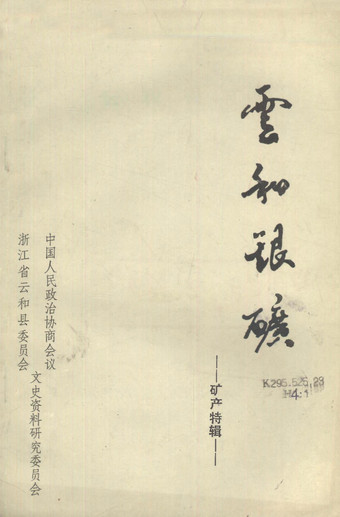 雲和银礦
——矿产特辑——
K295.525.29
H4:1
中国人民政治协商会议
浙江省云和县委员会
文史资料研究委员会